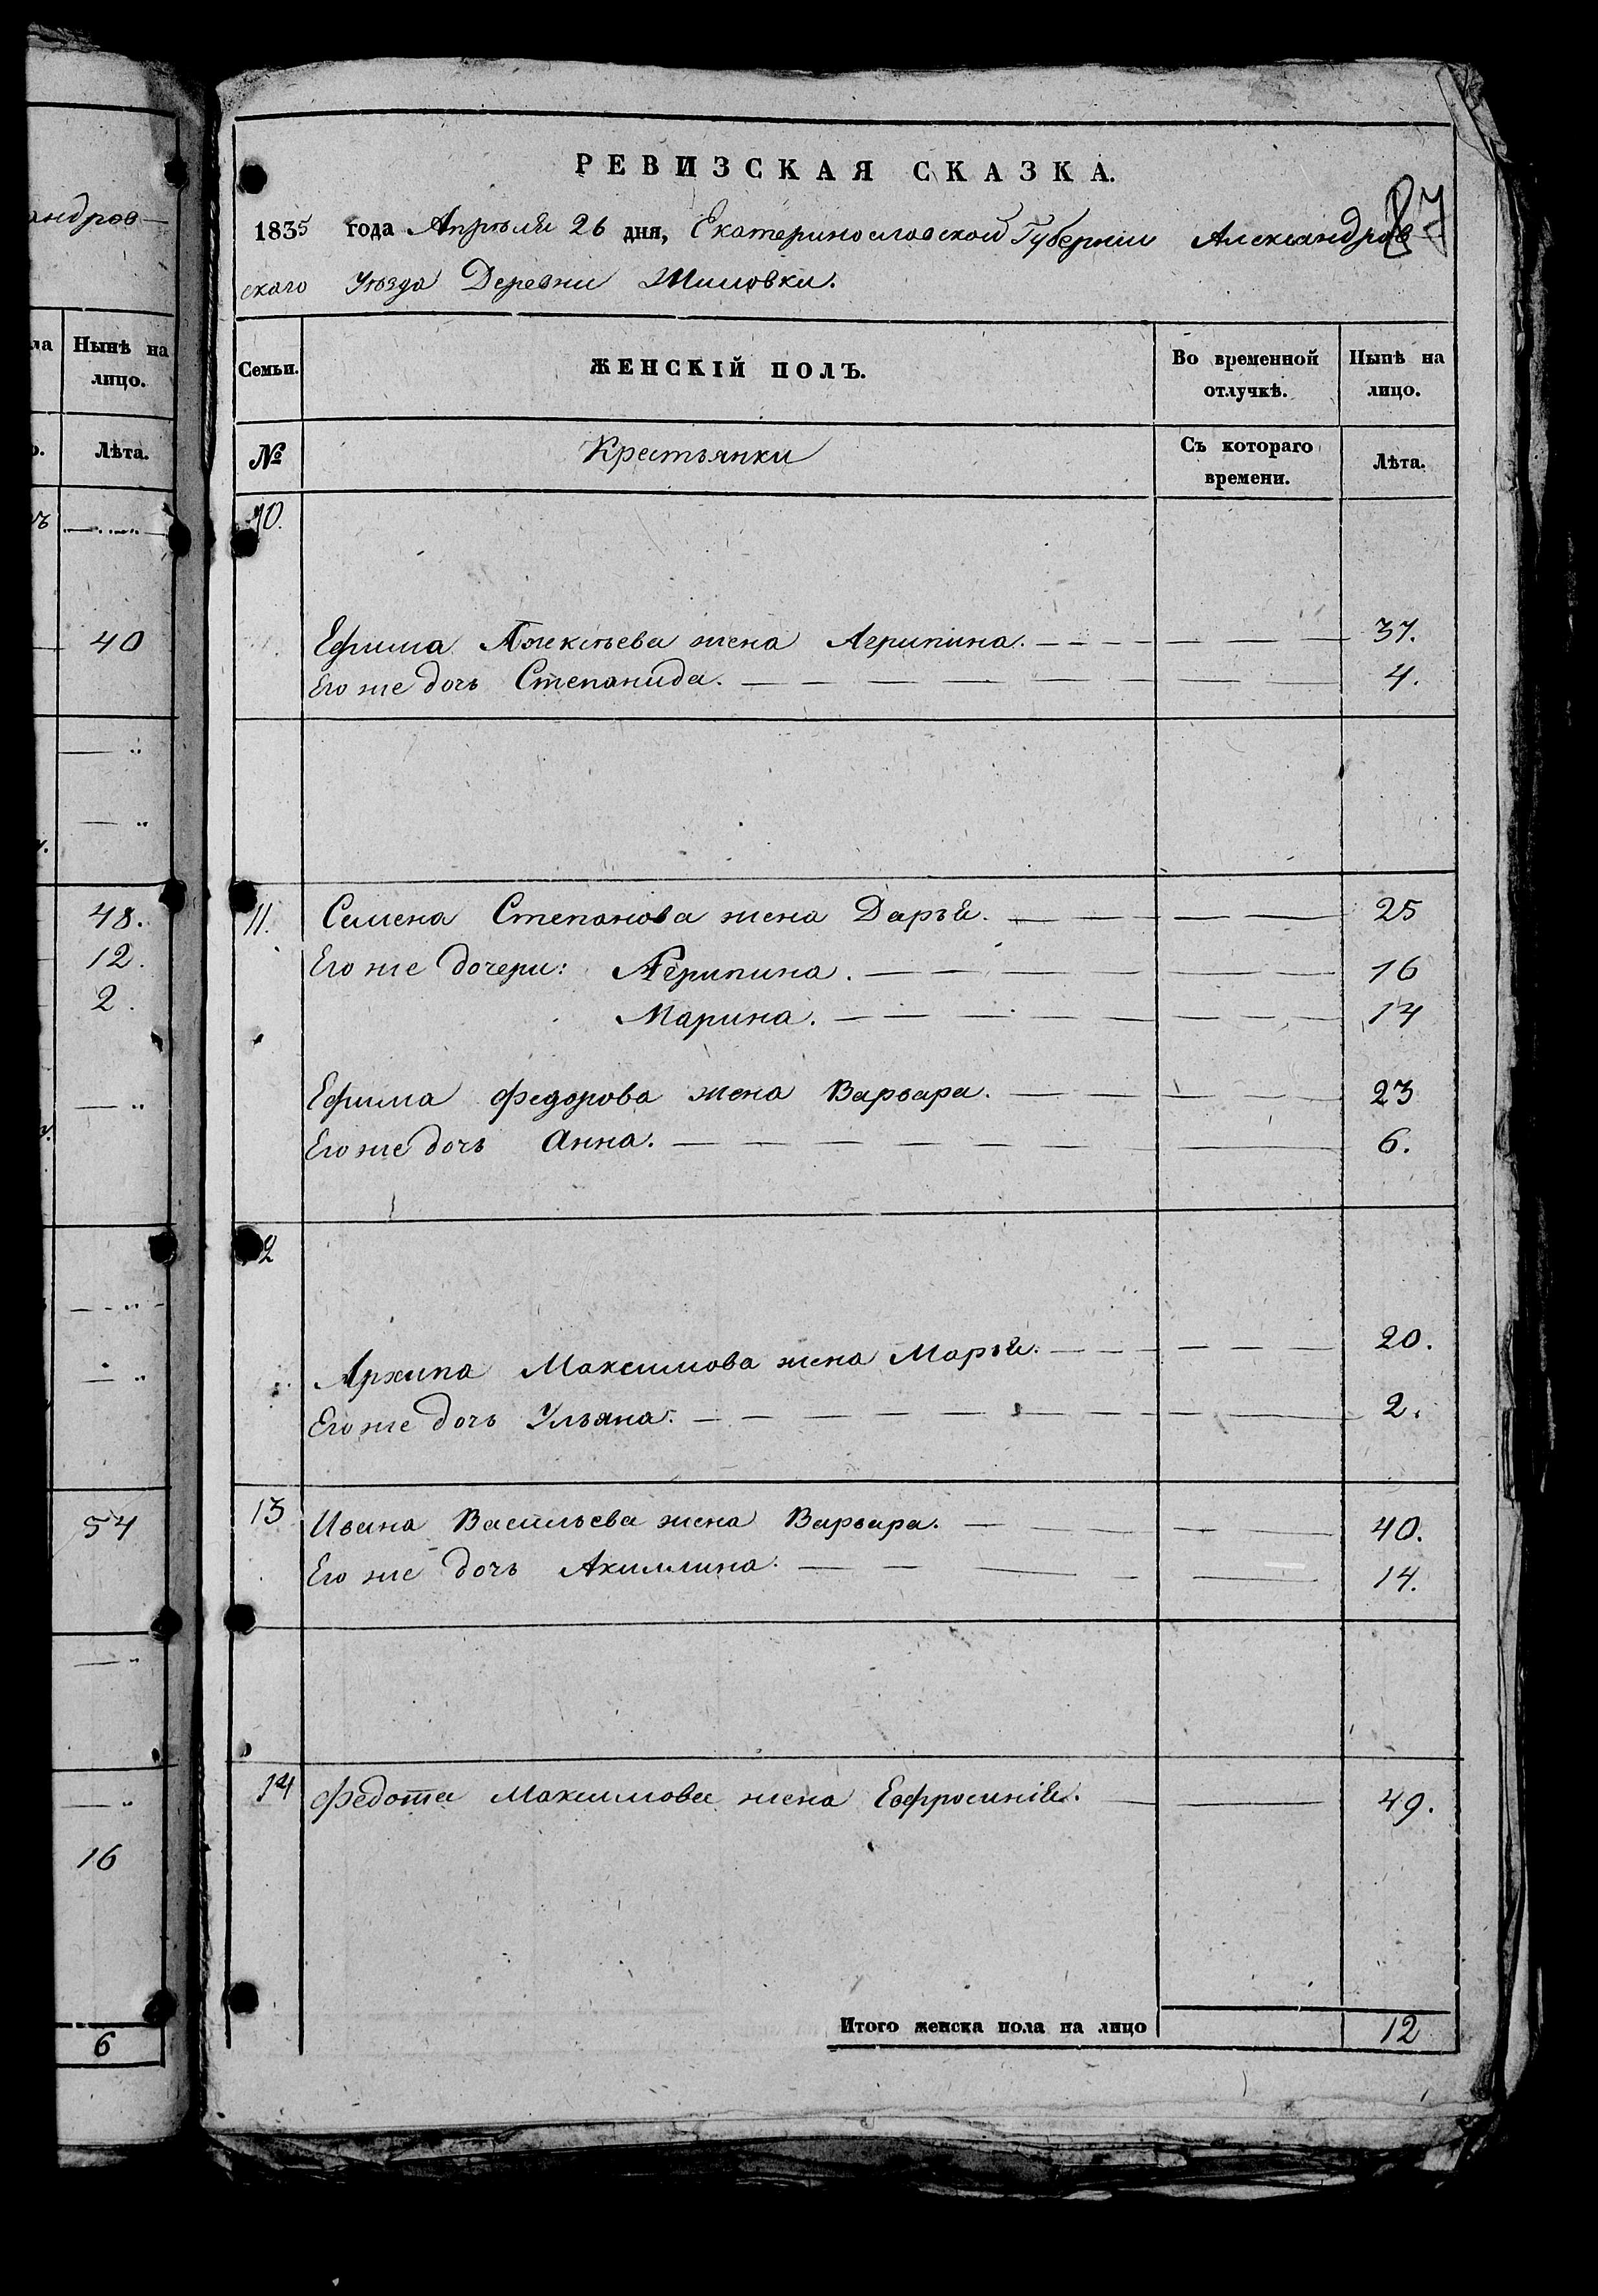 андров
ла
Нынѣ на
лицо.
Лѣта.
40
48.
12.
2.
54
16
6
РЕВИЗСКАЯ СКАЗКА.
87
1835 года Апрѣля 26 дня, Екатеринославской Губерніи Александров
скаго Уѣзда Деревни
Семьи.
ЖЕНСКІЙ ПОЛЪ.
Во временной
отлучкѣ.
Нынѣ на
лицо.
№
Крестьянки
Съ котораго
времени.
Лѣта.
10.
Ефима Алексѣева жена Агрипина. 37.
Его же дочь Степанида. 4.
11. Семена Степанова жена Дарья. 25
Его же дочери: Агрипина. 16
Марина. 14
Ефима Федорова жена Варвара. 23
Его же дочь Анна. 6.
12
Архипа Максимова жена Марья. 20.
Его же дочь Ульяна. 2.
13 Ивана Васильева жена Варвара. 40.
Его же дочь Акилина. 14.
14 Федота Максимова жена Евфросинія. 49.
Итого женска пола на лицо 12